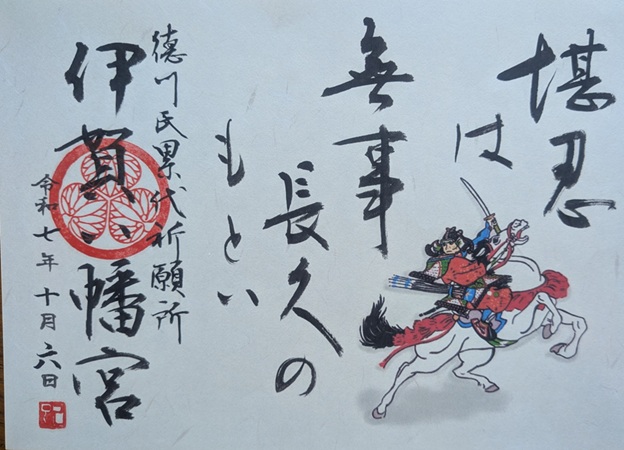 堪忍
は
無事
長久の
もとい
徳川氏累代祈願所
伊賀八幡宮
令和七年十月六日